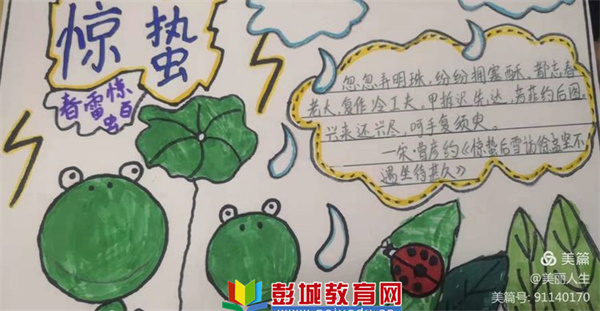 惊蛰
春雷惊百虫
忽忽弄明珠,纷纷拥雪酥。都忘春
老大,复作冷工夫。甲拆迟先达,芳菲约后图。
兴来还兴尽,呵手复须臾。
—宋·曹彦约《惊蛰后雪访徐孟坚不
遇坐待甚久》
美篇
@美丽人生
美篇号: 91140170
彭城教育网